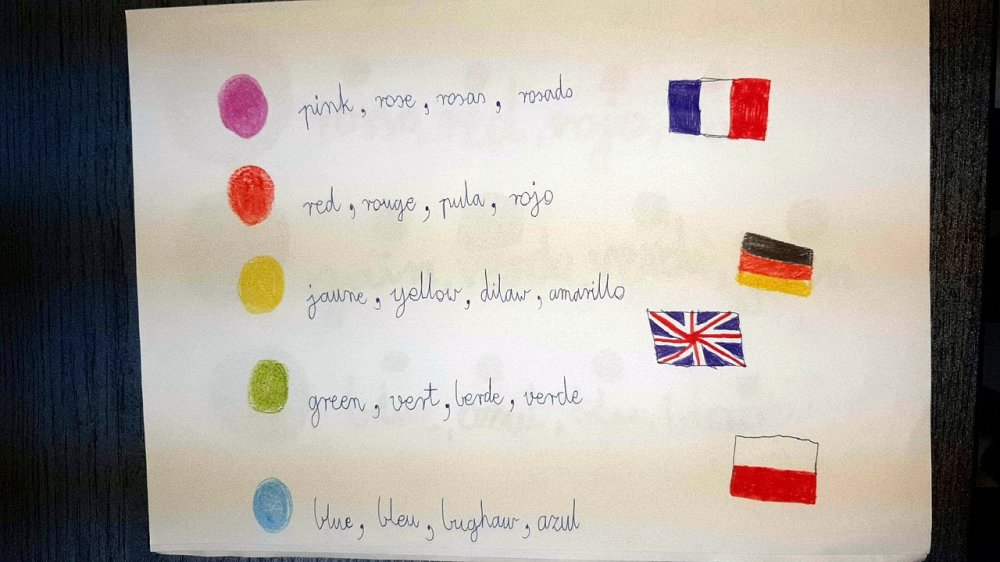 pink, rose, rosas, rosado
red, rouge, pula, rojo
jaune, yellow, dilaw, amarillo
green, vert, berde, verde
blue, bleu, bughaw, azul